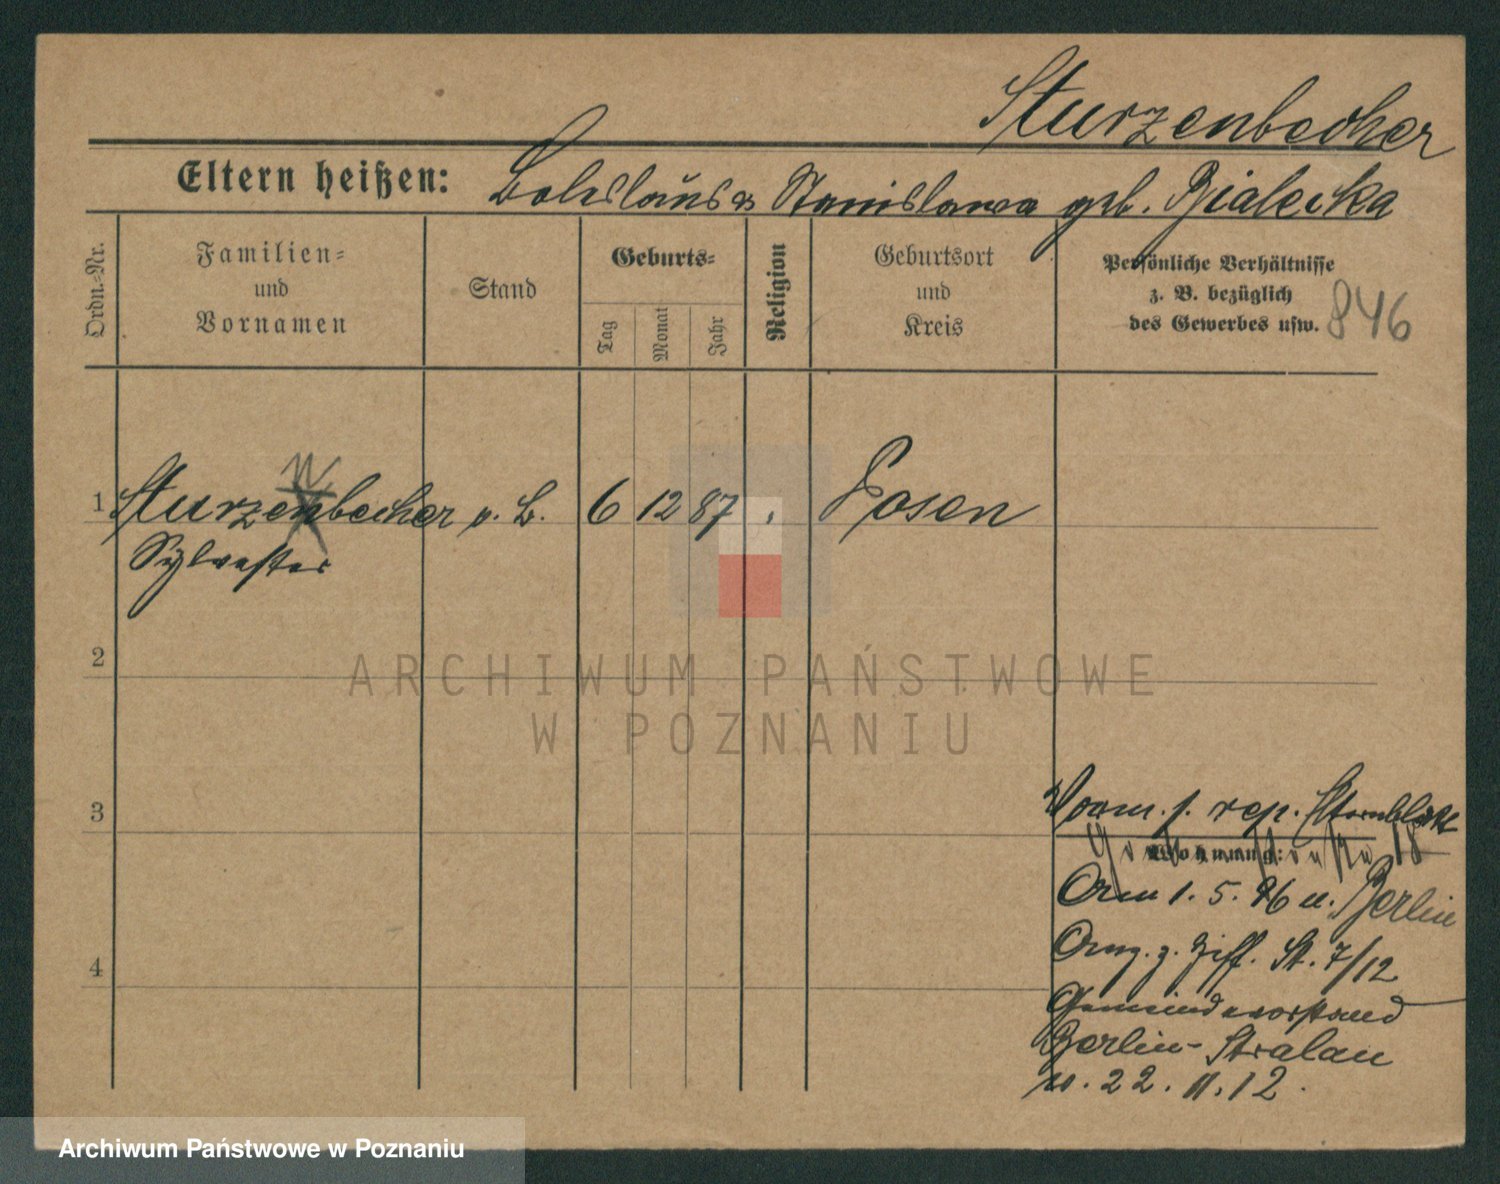 Sturzenbecher
Eltern heißen: Boleslaus & Stanislawa geb. Bialecka
Ordn.-Nr.
Familien-
und
Vornamen
Stand
Geburts-
Tag
Monat
Jahr
Religion
Geburtsort
und
Kreis
Persönliche Verhältnisse
z. B. bezüglich
des Gewerbes usw. 846
1 Sturzenbecher v. B. 6 12 87 Posen
Sylvester
2
3
4
Vorm. s. rep.
Wohnung: 18
1. 5. 96 n. Berlin
Anz. z. Ziff. St. 7/12
Gemeindevorstand
Berlin-Stralau
v. 22. 11. 12.
ARCHIWUM PAŃSTWOWE
W POZNANIU
Archiwum Państwowe w Poznaniu